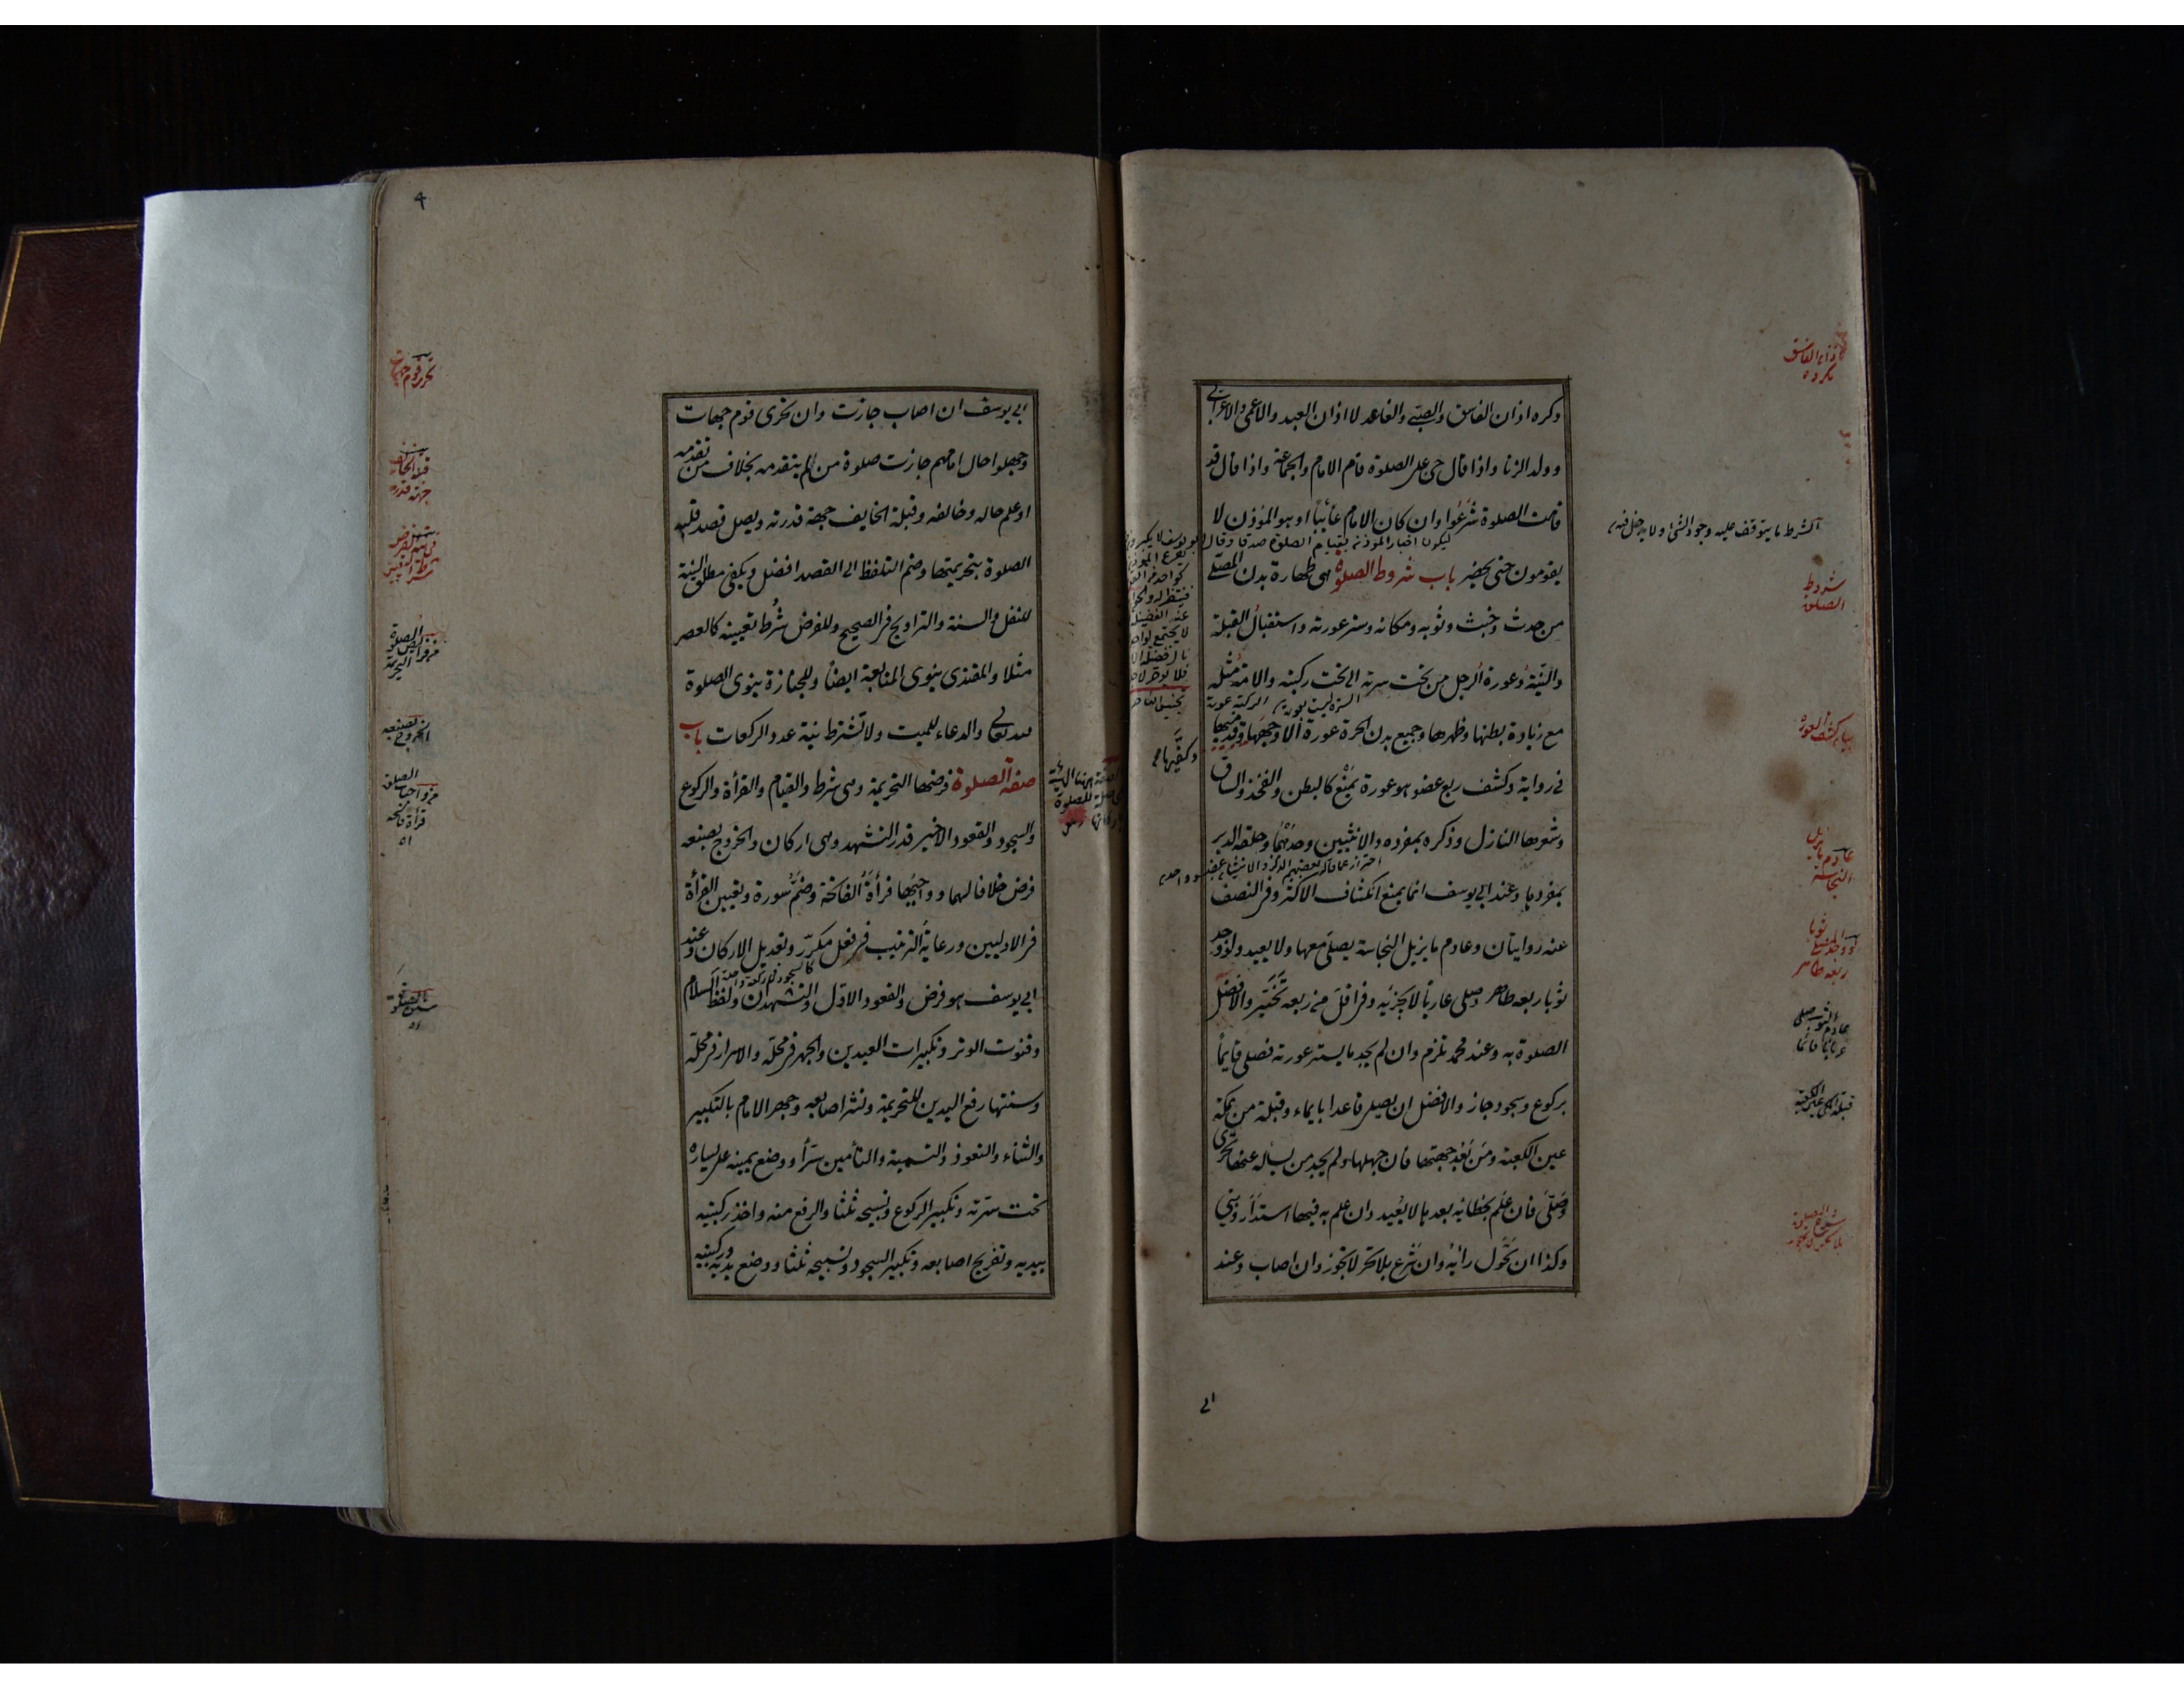 وكره اذان الفاسق والصبي والقاعد لا اذان العبد والاعمى والاعرابي
وولد الزنا واذا قال حي على الصلوة قام الامام والجماعة واذا قال قد
قامت الصلوة شرعوا وان كان الامام غائبا او هو المؤذن لا
ليكون اخبار المؤذن بقيام الصلوة صدقا وقال ابو يوسف لا يكبر
يقومون حتى يحضر باب شروط الصلوة هي طهارة بدن المصلي
من حدث وخبث وثوبه ومكانه وستر عورته واستقبال القبلة
والنية وعورة الرجل من تحت سرته الى تحت ركبته والامة مثله
السرة ليست بعورة الركبة عورة
مع زيادة بطنها وظهرها وجميع بدن الحرة عورة الا وجهها وقدميها
وكفيها
في رواية وكشف ربع عضو هو عورة يمنع كالبطن والفخذ والساق
وشعرها النازل وذكره بمفرده والانثيين وحدهما وحلقة الدبر
احتراز عما قاله بعضهم الذكر والانثيان عضو واحد
بمفردها وعند ابي يوسف انما يمنع انكشاف الاكثر وفي النصف
عنه روايتان وعادم ما يزيل النجاسة يصلي معها ولا يعيد ولو وجد
ثوبا ربعه طاهر وصلى عاريا لا يجزيه وفي اقل من ربعه تخير والافضل
الصلوة به وعند محمد تلزم وان لم يجد ما يستر عورته فصلى قايما
بركوع وسجود جاز والافضل ان يصلي قاعدا بايماء وقبلة من بمكة
عين الكعبة ومن بعد جهتها فان جهلها ولم يجد من يساله عنها تحرى
وصلى فان علم بخطائه بعدها لا يعيد وان علم به فيها استدار وبنى
وكذا ان تحول رأيه وان شرع بلا تحر لا تجوز وان اصاب وعند
الشرط ما يتوقف عليه وجود الشئ ولا يدخل فيه
اذان الفاسق مكروه
شروط الصلوة
بيان كشف العورة
عادم ما يزيل النجاسة
لو وجد المصلي ثوبا ربعه طاهر
عادم الثوب صلى عريانا قائما
قبلة المكي عين الكعبة
ابي
٤
ابي يوسف ان اصاب جازت وان تحرى قوم جهات
وجهلوا حال امامهم جازت صلوة من لم يتقدمه بخلاف من تقدمه
او علم حاله وخالفه وقبلة الخايف جهة قدرته ويصل قصد قلبه
الصلوة بتحريمتها وضم التلفظ الى القصد افضل ويكفى مطلق النية
للنفل والسنة والتراويح في الصحيح وللفرض شرط تعيينه كالعصر
مثلا والمقتدى ينوى المتابعة ايضا وللجنازة ينوى الصلوة
لله تعالى والدعاء للميت ولا تشترط نية عدد الركعات باب
صفة الصلوة فرضها التحريمة وهى شرط والقيام والقرأة والركوع
والسجود والقعود الاخير قدر التشهد وهى اركان والخروج بصنعه
فرض خلافا لهما وواجبها قرأة الفاتحة وضم سورة وتعيين القرأة
في الاوليين ورعاية الترتيب في فعل مكرر وتعديل الاركان وعند
كالسجود في ركعة واحدة
ابي يوسف هو فرض والقعود الاول والتشهدان ولفظ السلام
وقنوت الوتر وتكبيرات العيدين والجهر في محله والاسرار في محله
وسنتها رفع اليدين للتحريمة ونشر اصابعه وجهر الامام بالتكبير
والثناء والتعوذ والتسمية والتأمين سرا ووضع يمينه على يساره
تحت سرته وتكبير الركوع وتسبيحه ثلثا والرفع منه واخذ ركبتيه
بيديه وتفريج اصابعه وتكبير السجود وتسبيحه ثلثا ووضع يديه وركبتيه
قبلة الخائف جهة قدرته
من فرائض الصلوة التحريمة
الخروج بصنعه
من واجبات الصلوة قرأة فاتحه